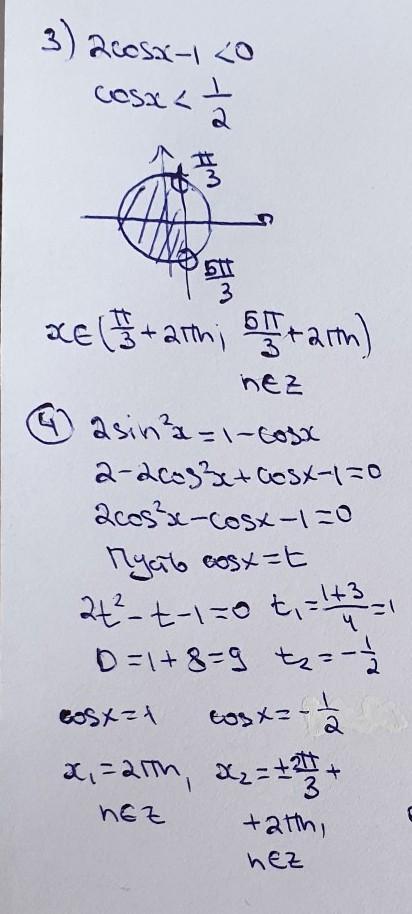 3) 2cosx-1 <0
cosx < 1/2
π/3
5π/3
x∈(π/3+2πn; 5π/3+2πn)
n∈z
④ 2sin²x=1-cosx
2-2cos²x+cosx-1=0
2cos²x-cosx-1=0
Пусть cosx=t
2t²-t-1=0 t₁=1+3/4=1
D=1+8=9 t₂=-1/2
cosx=1 cosx=-1/2
x₁=2πn, x₂=±2π/3+
n∈z +2πn,
n∈z